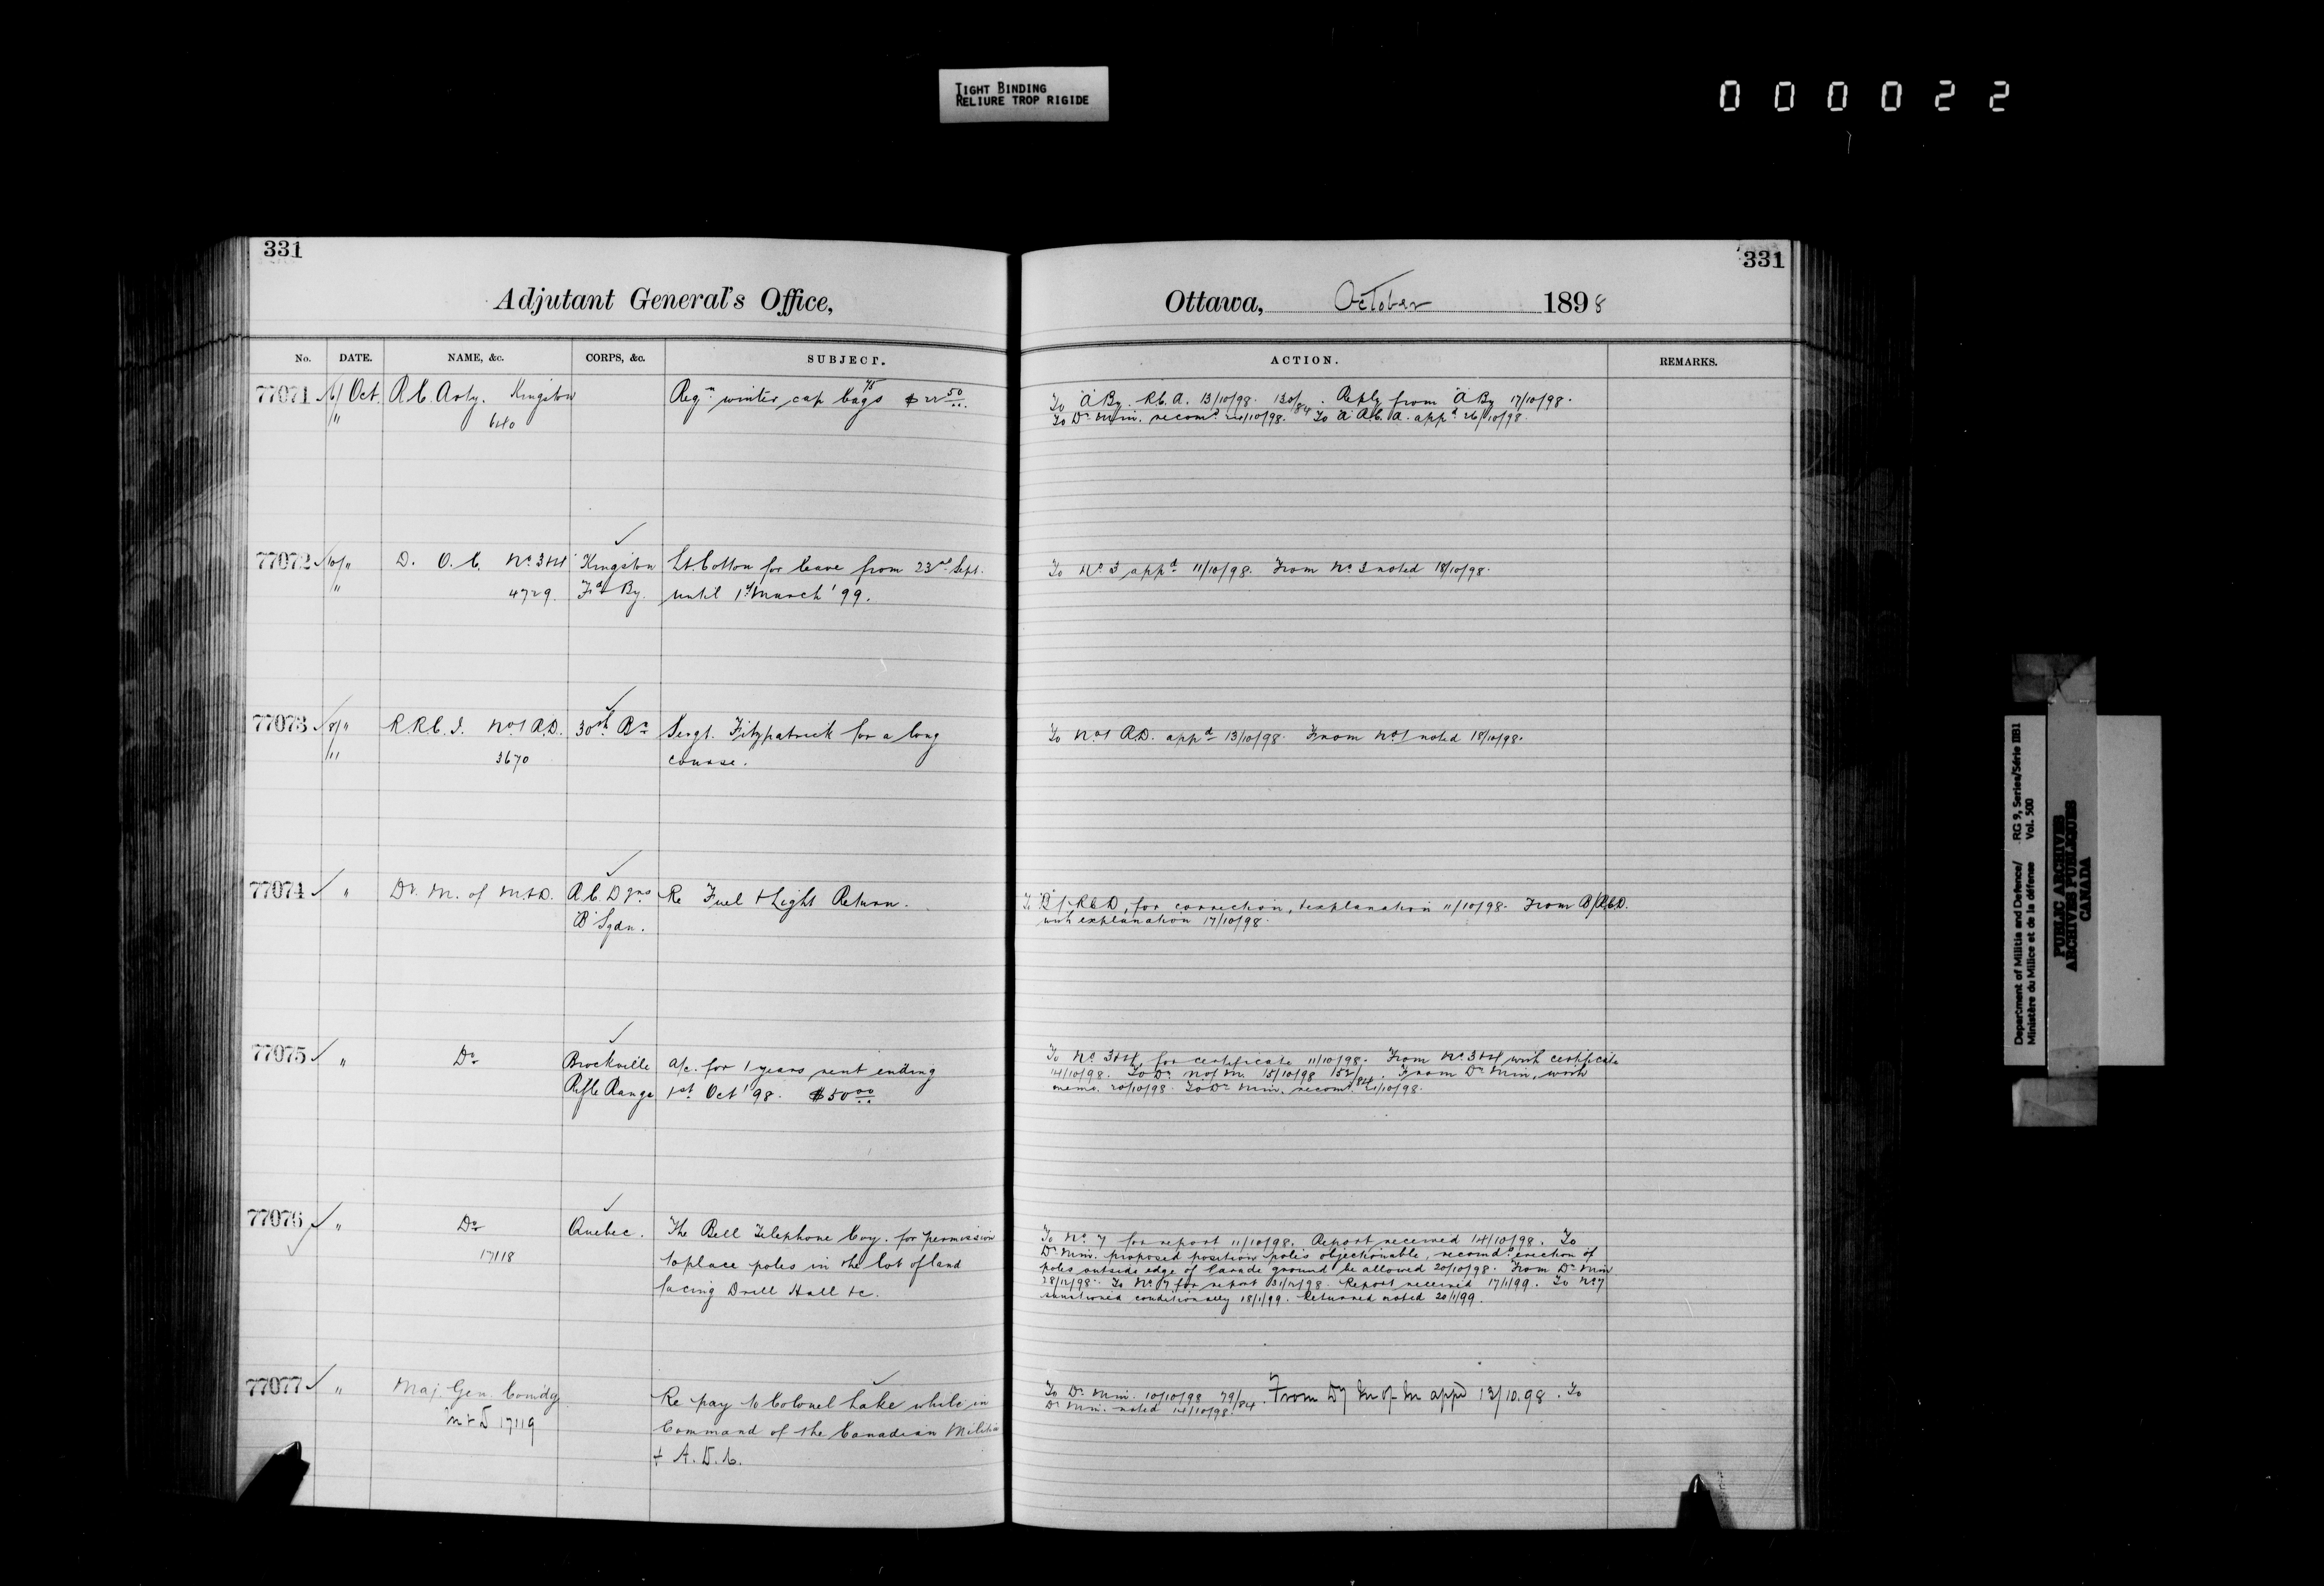 TIGHT BINDING
RELIURE TROP RIGIDE
000022
331
Adjutant General's Office,
331
Ottawa, October 1898
No. DATE. NAME, &c. CORPS, &c. SUBJECT. ACTION. REMARKS.
77071 6/ Oct. R.C. Arty. Kingston Reqn. winter cap bags 45 $22 50
" 640
To "A" By. R.C.A. 13/10/98. 130/84. Reply from "A" By 17/10/98.
To Dr. Min. recomd. 24/10/98. To "A" R.C.A. appd. 26/10/98.
77072 10/" D. O. C. No. 3&4 Kingston Lt. Cotton for leave from 23rd Sept.
" 4729 Fd By. until 1st March '99.
To No. 3 appd 11/10/98. From No. 3 noted 18/10/98.
77073 8/" R.R.C.I. No 1 R.D. 30th Bn Sergt. Fitzpatrick for a long
" 3670 course.
To No 1 R.D. appd 13/10/98. From No 1 noted 18/10/98.
77074 " Dr. M. of M.&D. R.C. Dgns Re Fuel & Light Return.
"B" Sqdn.
To "B"/R.C.D, for correction, & explanation 11/10/98. From B/R.C.D.
with explanation 17/10/98.
77075 " Do Brockville a/c. for 1 years rent ending
Rifle Range 1st Oct '98. $50 00
To No. 3&4 for certificate 11/10/98. From No. 3&4 with certificate
14/10/98. To Dr. M of M. 15/10/98 152/84. From Dr. Min, with
memo. 20/10/98. To Dr. Min. recomd 21/10/98.
77076 " Do Quebec. The Bell Telephone Coy. for permission
17118 to place poles in the lot of land
facing Drill Hall &c.
To No. 7 for report 11/10/98. Report received 14/10/98. To
Dr. Min. proposed position poles objectionable, recomd. erection of
poles outside edge of Parade ground be allowed 20/10/98. From Dr. Min
28/12/98. To No. 7 for report 31/12/98. Report received 17/1/99. To No 7
sanctioned conditionally 18/1/99. Returned noted 20/1/99.
77077 " Maj. Gen. Comdg. Re pay to Colonel Lake while in
M & D 17119 Command of the Canadian Militia
& A.D.C.
To Dr. Min. 10/10/98 79/84. From Dy M of M appd 13/10.98. To
Dr. Min. noted 14/10/98.
Department of Militia and Defence/ RG 9, Series/Série IIB1
Ministère du Milice et de la défense Vol. 500
PUBLIC ARCHIVES
ARCHIVES PUBLIQUES
CANADA